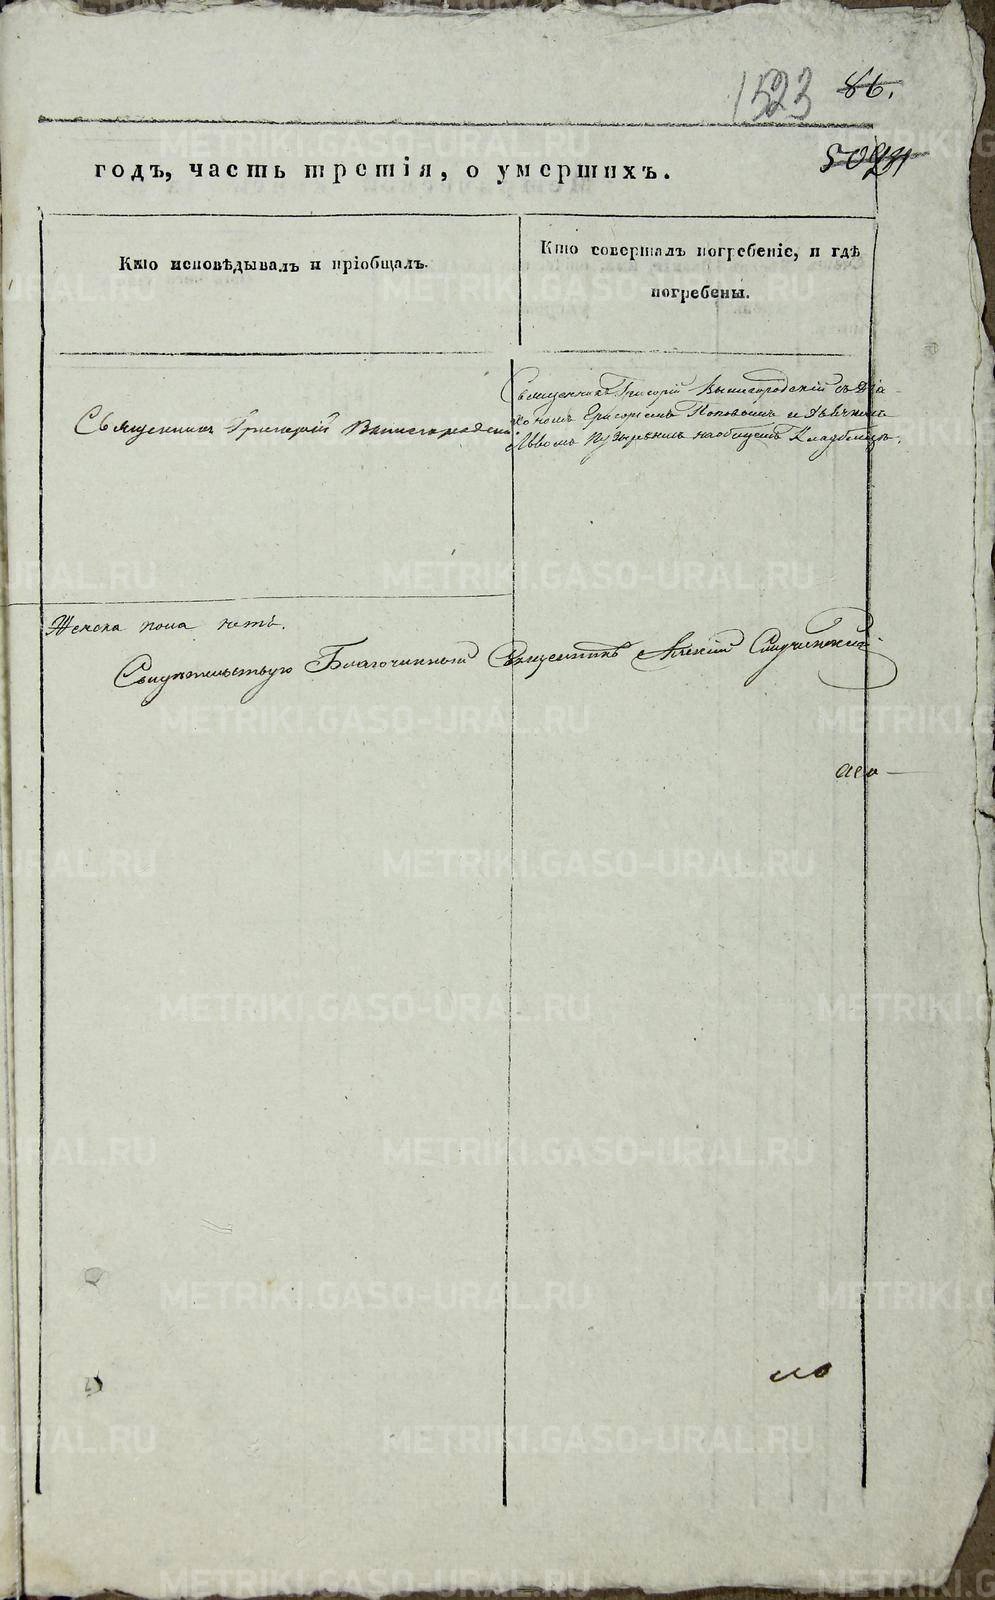 1523 86.
годъ, часть третія, о умершихъ.
Кто исповѣдывалъ и пріобщалъ.
Кто совершалъ погребеніе, и гдѣ
погребены.
Священникъ Григорій Вышегородскій
Священникъ Григорій Вышегородскій съ Діа-
кономъ Григоріемъ Поповымъ и Дьячкомъ
Львомъ Пузыревымъ на общемъ Кладбищѣ.
Женска пола нетъ.
Свидѣтельствую Благочинный Священникъ Алексій
METRIKI.GASO-URAL.RU